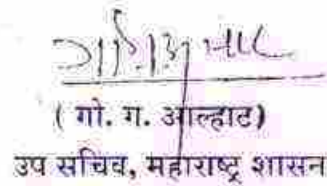 ( गो. ग. आल्हाट)
उप सचिव, महाराष्ट्र शासन